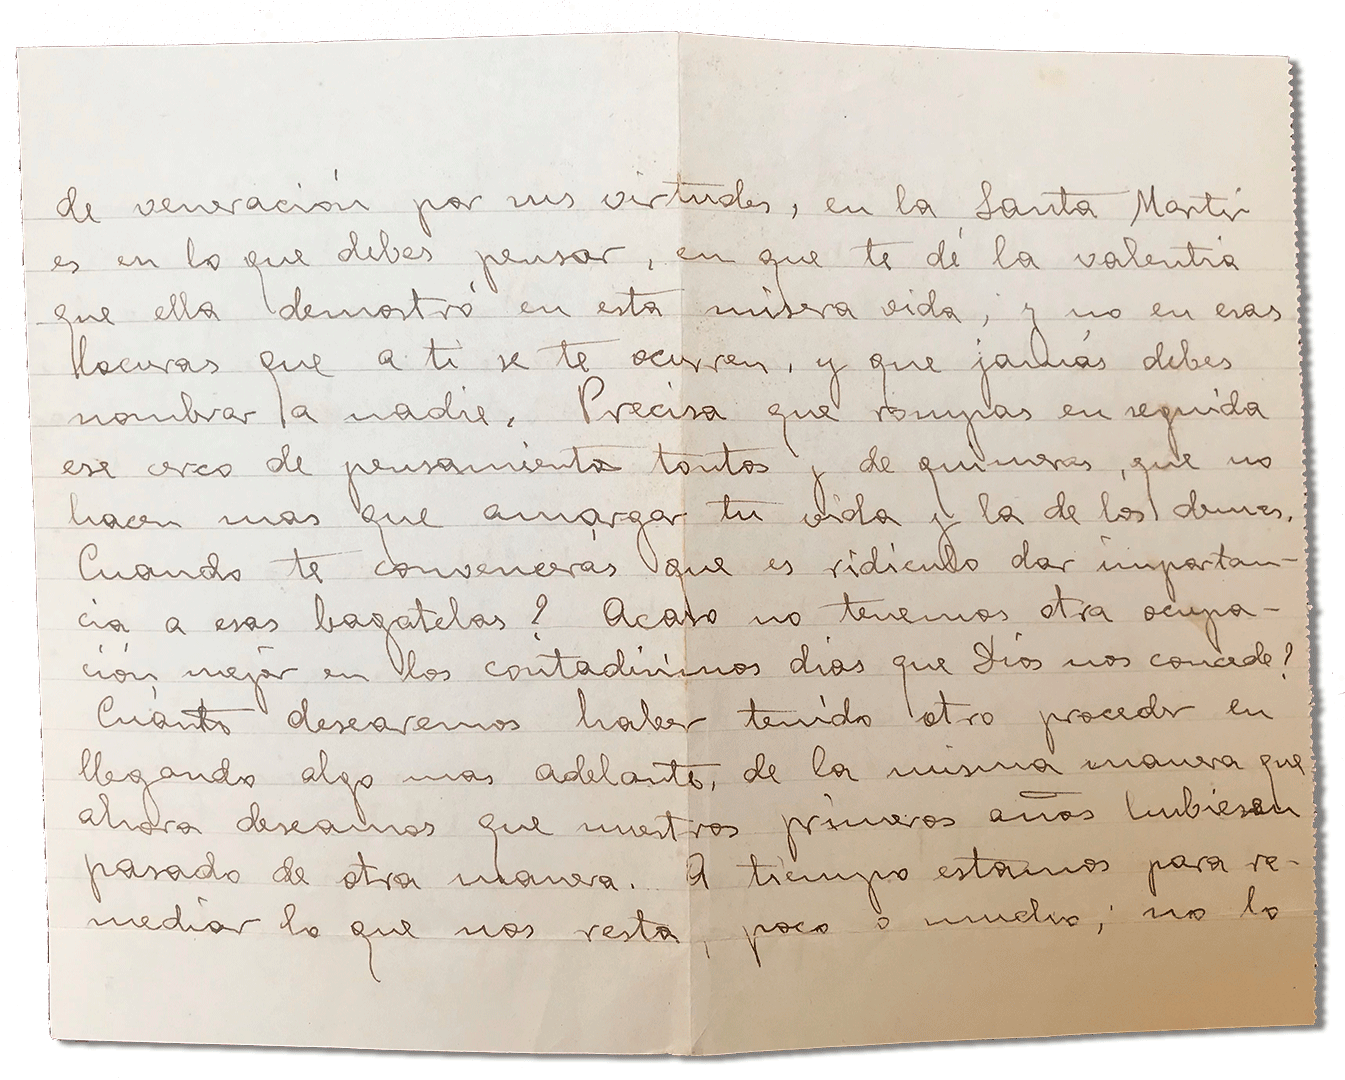 de veneración por sus virtudes, en la Santa Martir
es en lo que debes pensar, en que te dé la valentia
que ella demostró en esta misera vida, y no en esas
locuras que a ti se te ocurren, y que jamás debes
nombrar a nadie. Precisa que rompas en seguida
ese cerco de pensamientos tontos y de quimeras, que no
hacen mas que amargar tu vida y la de los demas.
Cuando te convencerás que es ridiculo dar importan-
cia a esas bagatelas? Acaso no tenemos otra ocupa-
ción mejor en los contadisimos dias que Dios nos concede?
Cuánto desearemos haber tenido otro proceder en
llegando algo mas adelante, de la misma manera que
ahora deseamos que nuestros primeros años hubiesen
pasado de otra manera. A tiempo estamos para re-
mediar lo que nos resta, poco o mucho; no lo